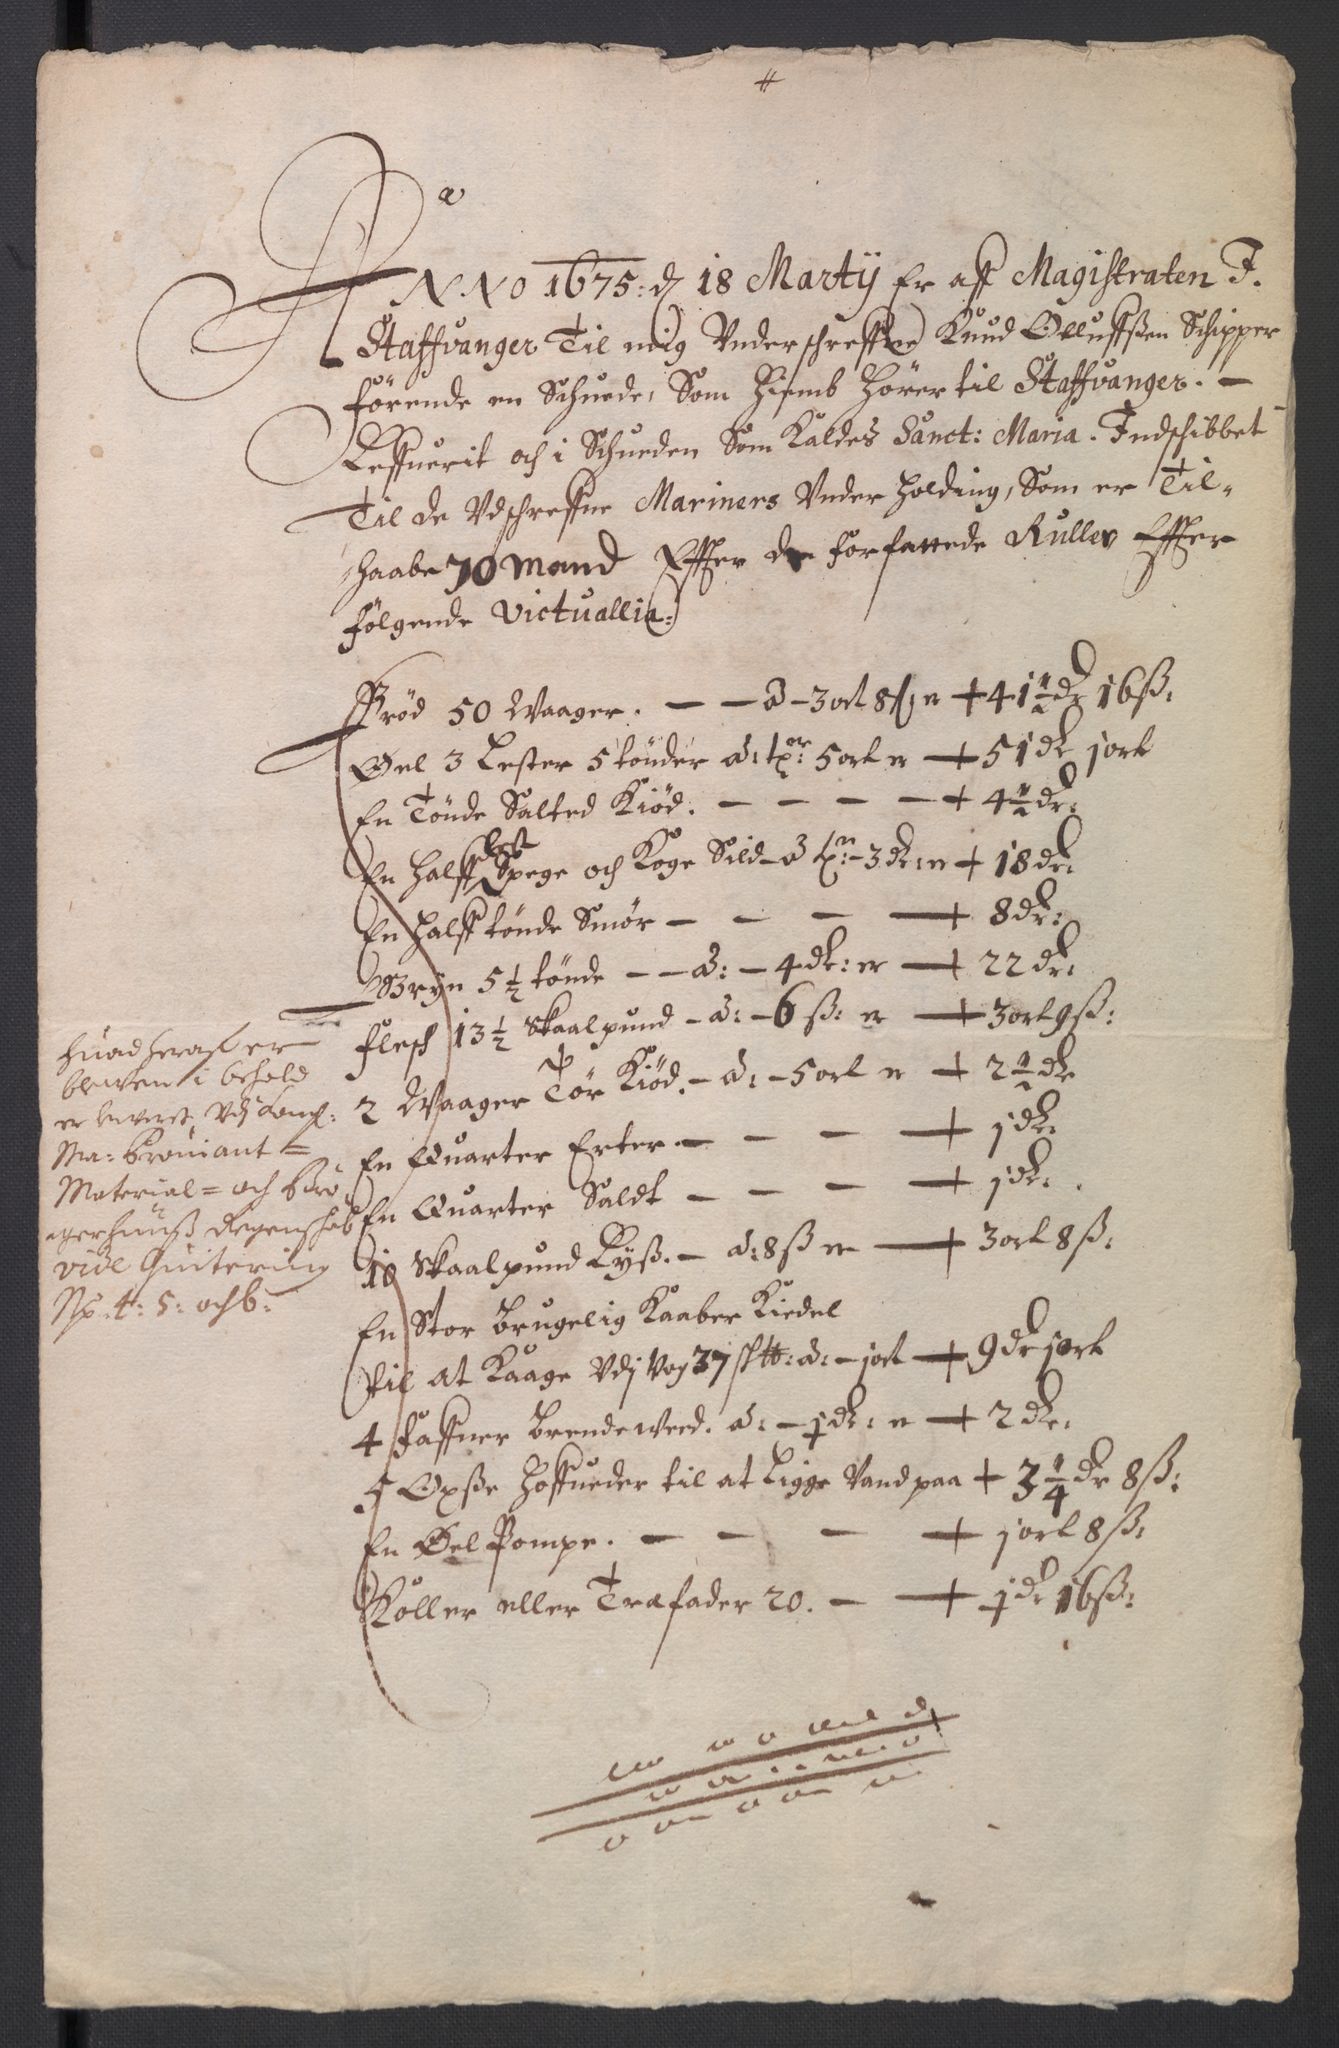 ANNO 1675: d 18 Martij Er aff Magistraten I.
Staffvanger Til mig Vnderschreffne Knud Olluffsßen Schipper
förende en Schuede, Som Hiemb Hörer til Staffvanger. —
Leffuerit och i Schueden Som Kaldes Sanct: Maria. Indschibbet
Til de Vdschreffne Mariners Vnder holding, Som er Til=
haabe 70 Mand Effter den forfattede Rulles Effter
fölgende Victuallia:
Bröd 50 Waager. — — a - 3 ort 8 ß er + 41 ½ dr 16 ß:
Öel 3 Lester 5 tönder a: tr: 5 ort er — + 51 dr 1 ort
En Tönde Salted Kiöd. — — — — + 4 ½ dr:
En halff lest Spege och Koge Sild - a tn: - 3 dr: er + 18 dr:
En halff tönde Smör — — — — + 8 dr:
Gryn 5 ½ tönde — — a: — 4 dr: er — + 22 dr:
Flesch 13 ½ Skaalpund - a: - 6 ß: er — + 3 ort 9 ß:
2 Waager Tör Kiöd. - a: - 5 ort er — + 2 ½ dr
En Quarter Erter — — — — + 1 dr:
En Quarter Saldt — — — — + 1 dr:
10 Skaalpund Lyß. — a: 8 ß er — + 3 ort 8 ß:
En Stor brugelig Kaaber Kiedel
til at Kaage Vdj Vog 37 sk ℔: a: — 1 ort — + 9 dr 1 ort
4 Faffner brendeweed. a: — ½ dr: er — + 2 dr:
5 Oxße Hoffueder til at Ligge Vand paa + 3 ¼ dr 8 ß:
En Öel Pompe. — — — — + 1 ort 8 ß:
Koller eller Træfader 20. — — + 1 dr 16 ß:
huad heraf er
blewen i behold
er leveret Vdj Kongl:
Ma: Proviant =
Material = och
Regenschab
vide Quitering
No. 4: 5: och 6: